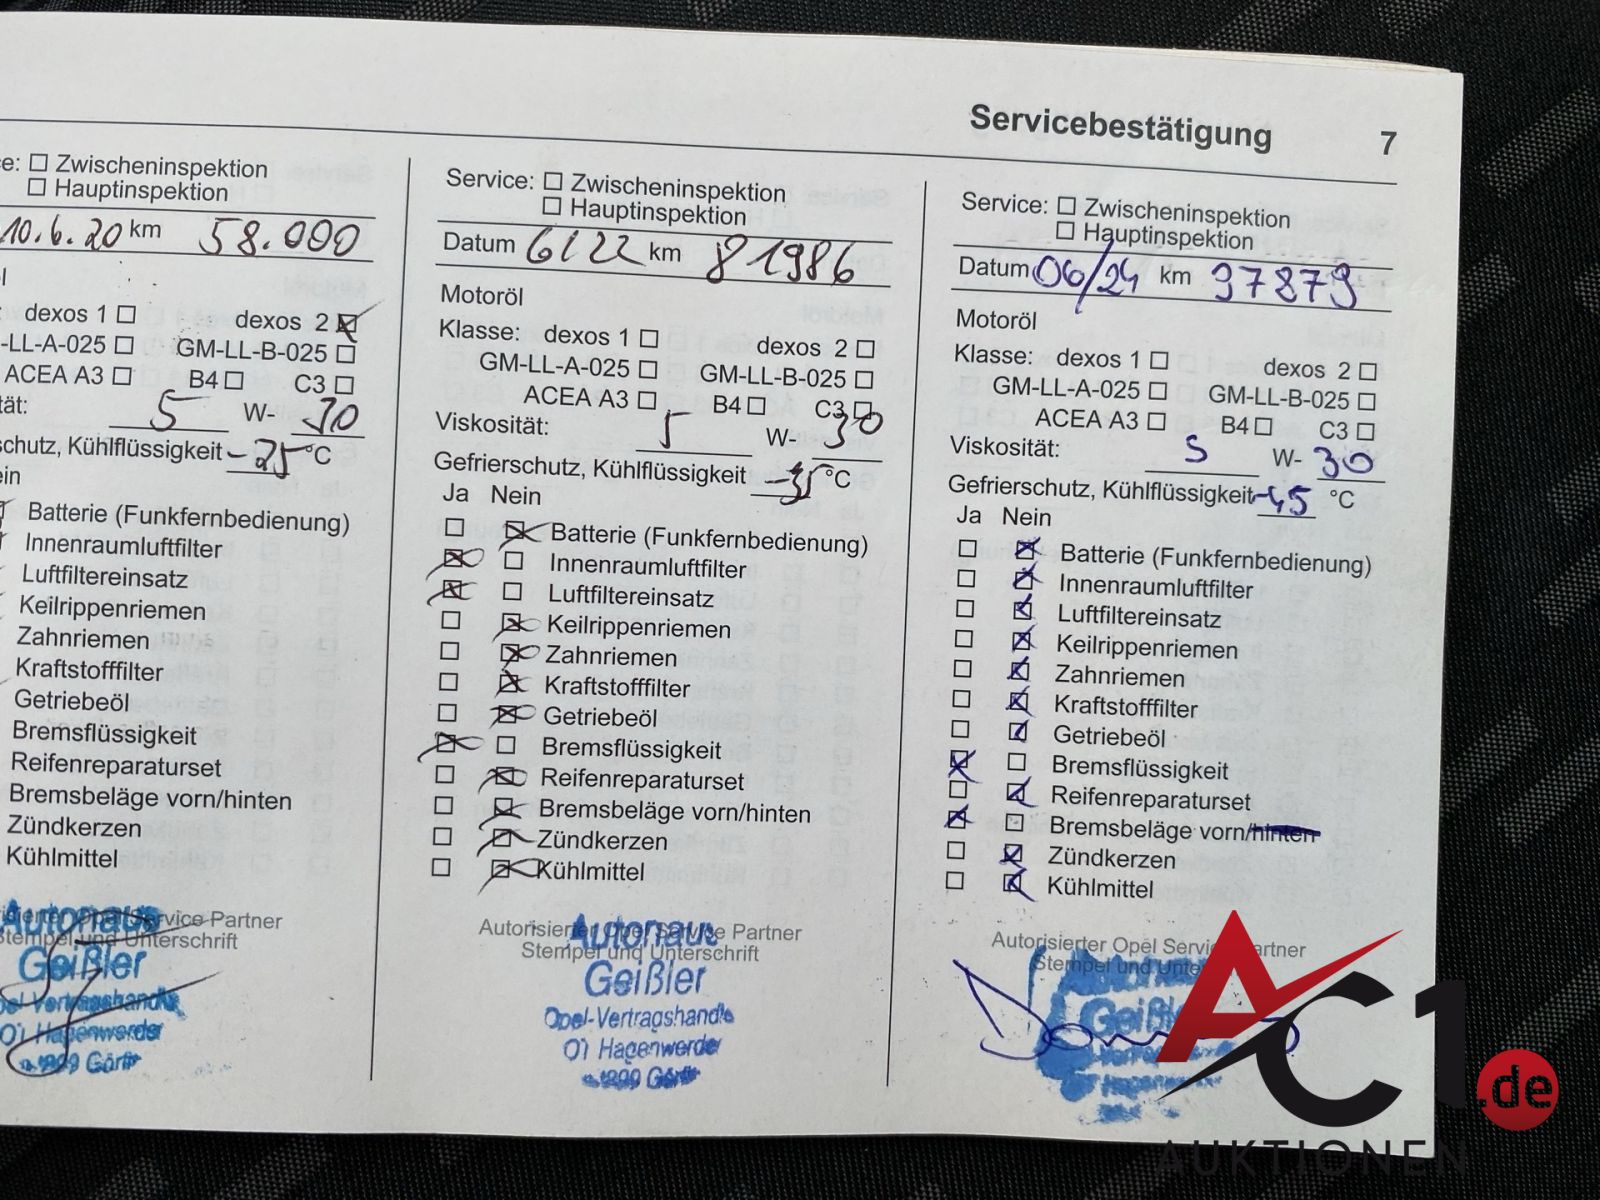 Servicebestätigung 7
e: ☐ Zwischeninspektion
☐ Hauptinspektion
10.6.20 km 58.000
dexos 1 ☐ dexos 2 ☒
-LL-A-025 ☐ GM-LL-B-025 ☐
ACEA A3 ☐ B4 ☐ C3 ☐
tät: 5 W- 30
schutz, Kühlflüssigkeit -25 °C
ein
Batterie (Funkfernbedienung)
Innenraumluftfilter
Luftfiltereinsatz
Keilrippenriemen
Zahnriemen
Kraftstofffilter
Getriebeöl
Bremsflüssigkeit
Reifenreparaturset
Bremsbeläge vorn/hinten
Zündkerzen
Kühlmittel
risierter Opel Service Partner
Stempel und Unterschrift
Autohaus
Geißler
pel-Vertragshandle
Hagenwerder
Service: ☐ Zwischeninspektion
☐ Hauptinspektion
Datum 6/22 km 81986
Motoröl
Klasse: dexos 1 ☐ dexos 2 ☐
GM-LL-A-025 ☐ GM-LL-B-025 ☐
ACEA A3 ☐ B4 ☐ C3 ☐
Viskosität: 5 W- 30
Gefrierschutz, Kühlflüssigkeit -35 °C
Ja Nein
☐ ☒ Batterie (Funkfernbedienung)
☒ ☐ Innenraumluftfilter
☒ ☐ Luftfiltereinsatz
☐ ☒ Keilrippenriemen
☐ ☒ Zahnriemen
☐ ☒ Kraftstofffilter
☐ ☒ Getriebeöl
☒ ☐ Bremsflüssigkeit
☐ ☒ Reifenreparaturset
☐ ☒ Bremsbeläge vorn/hinten
☐ ☒ Zündkerzen
☐ ☒ Kühlmittel
Autorisierter Opel Service Partner
Stempel und Unterschrift
Autohaus
Geißler
Opel-Vertragshandle
Hagenwerder
Service: ☐ Zwischeninspektion
☐ Hauptinspektion
Datum 06/24 km 97879
Motoröl
Klasse: dexos 1 ☐ dexos 2 ☐
GM-LL-A-025 ☐ GM-LL-B-025 ☐
ACEA A3 ☐ B4 ☐ C3 ☐
Viskosität: 5 W- 30
Gefrierschutz, Kühlflüssigkeit -45 °C
Ja Nein
☐ ☒ Batterie (Funkfernbedienung)
☐ ☒ Innenraumluftfilter
☐ ☒ Luftfiltereinsatz
☐ ☒ Keilrippenriemen
☐ ☒ Zahnriemen
☐ ☒ Kraftstofffilter
☐ ☒ Getriebeöl
☒ ☐ Bremsflüssigkeit
☐ ☒ Reifenreparaturset
☒ ☐ Bremsbeläge vorn/hinten
☐ ☒ Zündkerzen
☐ ☒ Kühlmittel
Autorisierter Opel Service Partner
Stempel und Unte
Geißler
AC1.de
AUKTIONEN